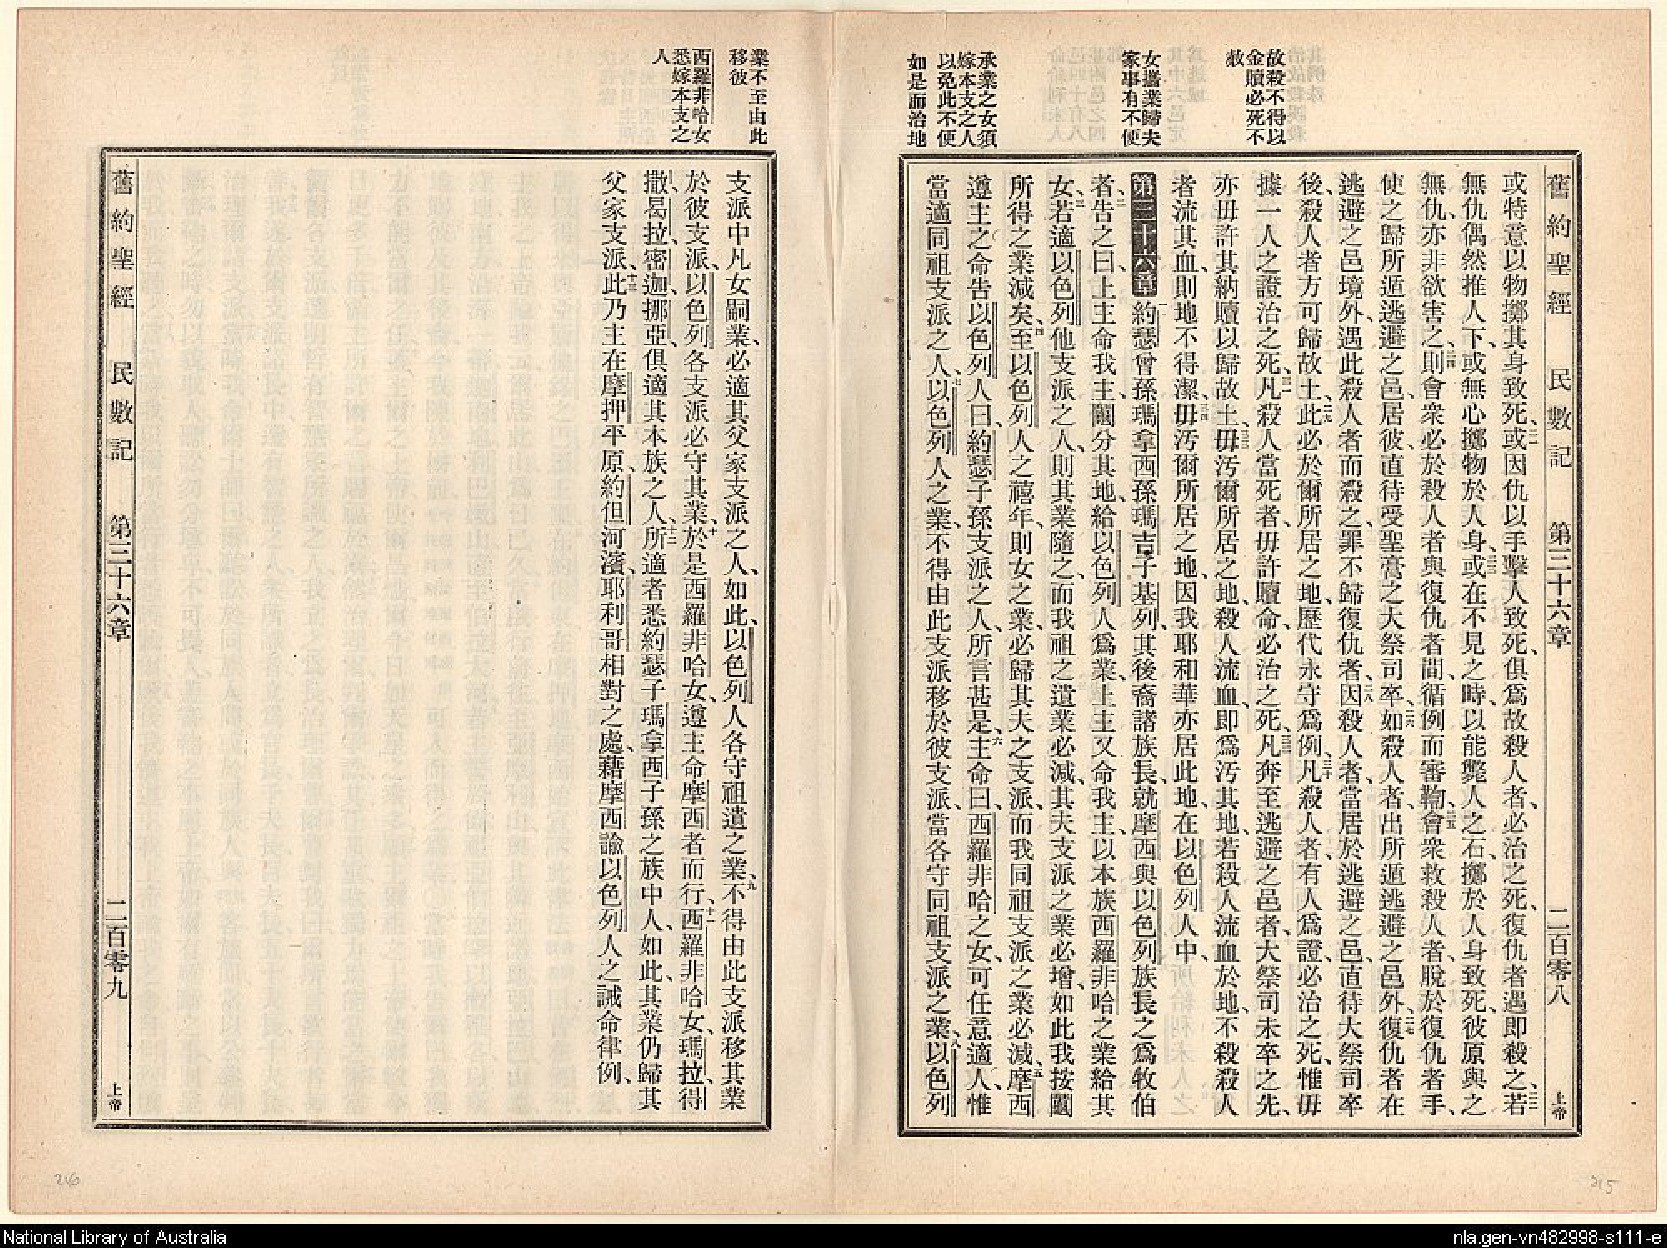 舊約聖經 民數記 第三十六章 二百零八 上帝
故殺不得以
金贖必死不
赦
女攜業歸夫
家事有不便
承業之女須
嫁本支之人
以免此不便
如是而治地
或特意以物擲其身致死、三一或因仇以手擊人致死、俱爲故殺人者、必治之死、復仇者遇卽殺之、三二若
無仇偶然推人下、或無心擲物於人身、三三或在不見之時、以能斃人之石、擲於人身致死、彼原與之
無仇、亦非欲害之、三四則會衆必於殺人者與復仇者間、循例而審鞫、三五會衆救殺人者、脫於復仇者手、
使之歸所遁逃避之邑、居彼、直待受聖膏之大祭司卒、三六如殺人者、出所遁逃避之邑外、三七復仇者在
逃避之邑境外、遇此殺人者而殺之、罪不歸復仇者、三八因殺人者、當居於逃避之邑、直待大祭司卒
後、殺人者方可歸故土、三九此必於爾所居之地、歷代永守爲例、三十凡殺人者、有人爲證、必治之死、惟毋
據一人之證治之死、三一凡殺人當死者、毋許贖命、必治之死、三二凡奔至逃避之邑者、大祭司未卒之先、
亦毋許其納贖以歸故土、三三毋汚爾所居之地、殺人流血、卽爲汚其地、若殺人流血於地、不殺殺人
者流其血、則地不得潔、三四毋汚爾所居之地、因我耶和華亦居此地、在以色列人中、
第三十六章 一約瑟曾孫瑪拿西孫瑪吉子基列、其後裔諸族長、就摩西與以色列族長之爲牧伯
者、二告之曰、上主命我主、鬮分其地、給以色列人爲業、上主又命我主、以本族西羅非哈之業給其
女、三若適以色列他支派之人、則其業隨之、而我祖之遺業必減、其夫支派之業必增、如此我按鬮
所得之業減矣、四至以色列人之禧年、則女之業、必歸其夫之支派、而我同祖支派之業必減、五摩西
遵主之命告以色列人曰、約瑟子孫支派之人、所言甚是、六主命曰、西羅非哈之女、可任意適人、惟
當適同祖支派之人、七以色列人之業、不得由此支派移於彼支派、當各守同祖支派之業、八以色列
業不至由此
移彼
西羅非哈女
悉嫁本支之
人
支派中凡女嗣業、必適其父家支派之人、如此、以色列人各守祖遺之業、九不得由此支派移其業
於彼支派、以色列各支派必守其業、十於是西羅非哈女、遵主命摩西者而行、十一西羅非哈女、瑪拉、得
撒、曷拉、密迦、挪亞、俱適其本族之人、十二所適者悉約瑟子瑪拿西子孫之族中人、如此、其業仍歸其
父家支派、十三此乃主在摩押平原、約但河濱、耶利哥相對之處、藉摩西諭以色列人之誡命律例、
舊約聖經 民數記 第三十六章 二百零九 上帝
215
216
National Library of Australia
nla.gen-vn482998-s111-e